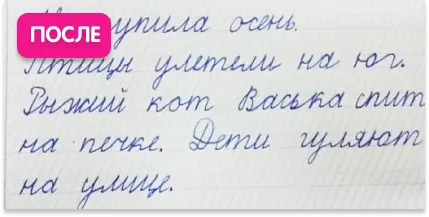 ПОСЛЕ
осень.
Птицы улетели на юг.
Рыжий кот Васька спит
на печке. Дети гуляют
на улице.